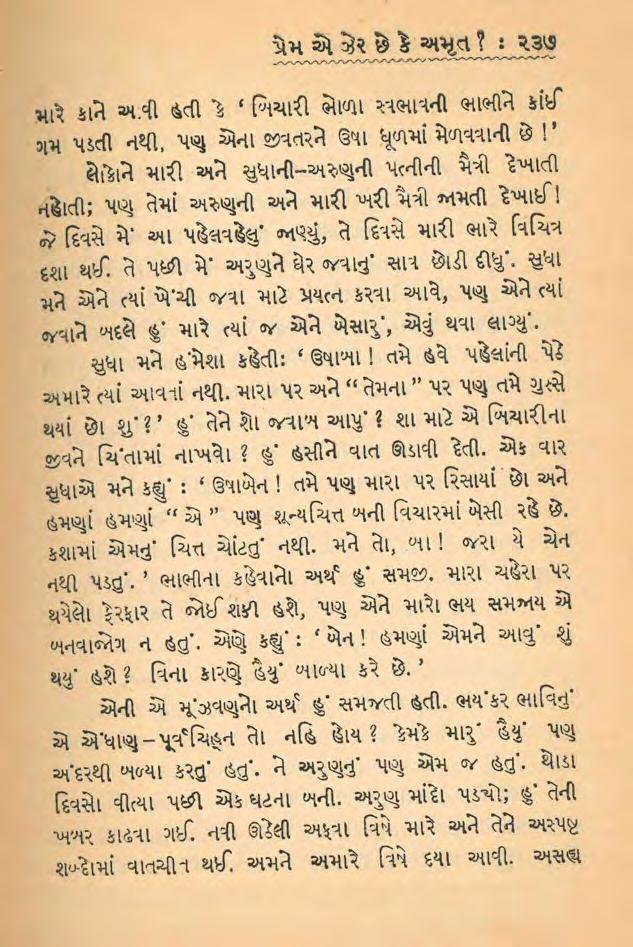 પ્રેમ એ ઝેર છે કે અમૃત? : ૨૩૭
મારે કાને આવી હતી કે ‘બિચારી ભોળા સ્વભાવની ભાભીને કાંઈ
ગમ પડતી નથી, પણ એના જીવતરને ઉષા ધૂળમાં મેળવવાની છે!’
લોકોને મારી અને સુધાની–અરુણની પત્નીની મૈત્રી દેખાતી
નહોતી; પણ તેમાં અરુણની અને મારી ખરી મૈત્રી જામતી દેખાઈ!
જે દિવસે મેં આ પહેલવહેલું જાણ્યું, તે દિવસે મારી ભારે વિચિત્ર
દશા થઈ. તે પછી મેં અરુણને ઘેર જવાનું સાવ છોડી દીધું. સુધા
મને એને ત્યાં ખેંચી જવા માટે પ્રયત્ન કરવા આવે, પણ એને ત્યાં
જવાને બદલે હું મારે ત્યાં જ એને બેસારું, એવું થવા લાગ્યું.
સુધા મને હંમેશા કહેતી: ‘ઉષાબા! તમે હવે પહેલાંની પેઠે
અમારે ત્યાં આવતાં નથી. મારા પર અને “તેમના” પર પણ તમે ગુસ્સે
થયાં છો શું?’ હું તેને શો જવાબ આપું? શા માટે એ બિચારીના
જીવને ચિંતામાં નાખવો? હું હસીને વાત ઊડાવી દેતી. એક વાર
સુધાએ મને કહ્યું : ‘ઉષાબેન! તમે પણ મારા પર રિસાયાં છો અને
હમણાં હમણાં “એ” પણ શૂન્યચિત્ત બની વિચારમાં બેસી રહે છે.
કશામાં એમનું ચિત્ત ચોંટતું નથી. મને તો, બા! જરા યે ચેન
નથી પડતું.’ ભાભીના કહેવાનો અર્થ હું સમજી. મારા ચહેરા પર
થયેલો ફેરફાર તે જોઈ શકી હશે, પણ એને મારો ભય સમજાય એ
બનવાજોગ ન હતું. એણે કહ્યું : ‘બેન! હમણાં એમને આવું શું
થયું હશે? વિના કારણે હૈયું બાળ્યા કરે છે.’
એની એ મૂંઝવણનો અર્થ હું સમજતી હતી. ભયંકર ભાવિનું
એ એંધાણ–પૂર્વચિહ્ન તો નહિ હોય? કેમકે મારું હૈયું પણ
અંદરથી બળ્યા કરતું હતું. ને અરુણનું પણ એમ જ હતું. થોડા
દિવસો વીત્યા પછી એક ઘટના બની. અરુણ માંદો પડ્યો; હું તેની
ખબર કાઢવા ગઈ. નવી ઊડેલી અફવા વિષે મારે અને તેને અસ્પષ્ટ
શબ્દોમાં વાતચીત થઈ. અમને અમારે વિષે દયા આવી. અસહ્ય